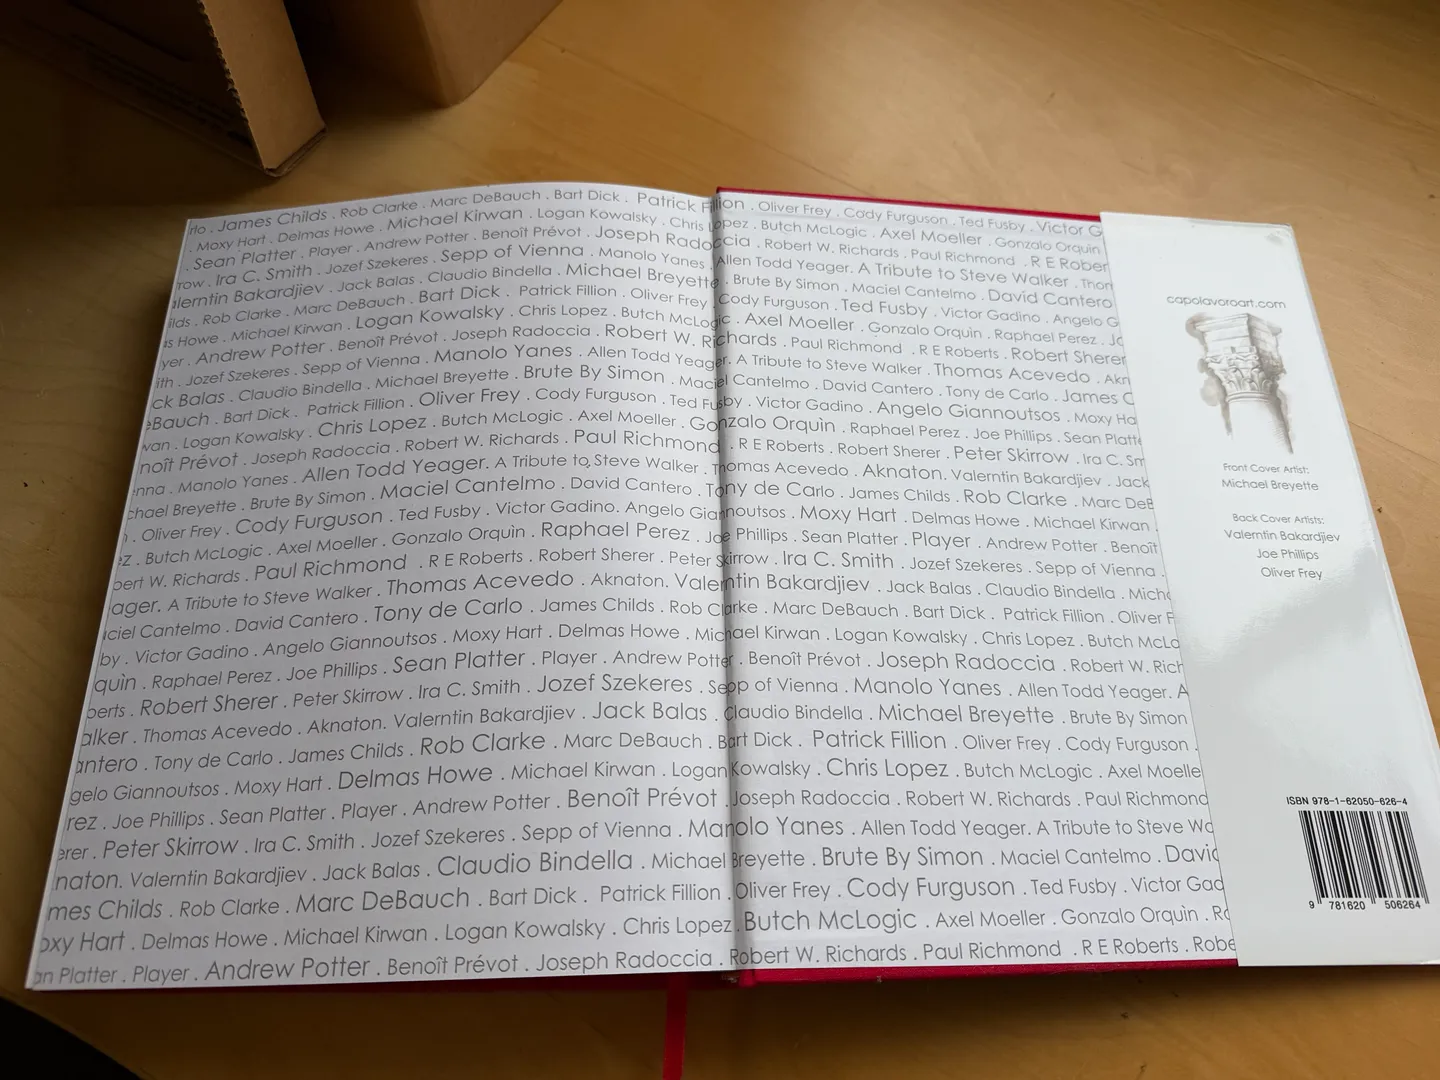 rlo . James Childs . Rob Clarke . Marc DeBauch . Bart Dick . Patrick Fillion . Oliver Frey . Cody Furguson . Ted Fusby . Victor G
. Moxy Hart . Delmas Howe . Michael Kirwan . Logan Kowalsky . Chris Lopez . Butch McLogic . Axel Moeller . Gonzalo Orquin
. Sean Platter . Player . Andrew Potter . Benoît Prévot . Joseph Radoccia . Robert W. Richards . Paul Richmond . R E Rober
row . Ira C. Smith . Jozef Szekeres . Sepp of Vienna . Manolo Yanes . Allen Todd Yeager. A Tribute to Steve Walker . Thon
alerntin Bakardjiev . Jack Balas . Claudio Bindella . Michael Breyette . Brute By Simon . Maciel Cantelmo . David Cantero
ilds . Rob Clarke . Marc DeBauch . Bart Dick . Patrick Fillion . Oliver Frey . Cody Furguson . Ted Fusby . Victor Gadino . Angelo G
as Howe . Michael Kirwan . Logan Kowalsky . Chris Lopez . Butch McLogic . Axel Moeller . Gonzalo Orquìn . Raphael Perez . Jo
yer . Andrew Potter . Benoît Prévot . Joseph Radoccia . Robert W. Richards . Paul Richmond . R E Roberts . Robert Sherer
ith . Jozef Szekeres . Sepp of Vienna . Manolo Yanes . Allen Todd Yeager. A Tribute to Steve Walker . Thomas Acevedo . Akn
ck Balas . Claudio Bindella . Michael Breyette . Brute By Simon . Maciel Cantelmo . David Cantero . Tony de Carlo . James C
eBauch . Bart Dick . Patrick Fillion . Oliver Frey . Cody Furguson . Ted Fusby . Victor Gadino . Angelo Giannoutsos . Moxy Ha
wan . Logan Kowalsky . Chris Lopez . Butch McLogic . Axel Moeller . Gonzalo Orquìn . Raphael Perez . Joe Phillips . Sean Platte
noît Prévot . Joseph Radoccia . Robert W. Richards . Paul Richmond . R E Roberts . Robert Sherer . Peter Skirrow . Ira C. Sm
nna . Manolo Yanes . Allen Todd Yeager. A Tribute to Steve Walker . Thomas Acevedo . Aknaton. Valerntin Bakardjiev . Jack
chael Breyette . Brute By Simon . Maciel Cantelmo . David Cantero . Tony de Carlo . James Childs . Rob Clarke . Marc DeB
. Oliver Frey . Cody Furguson . Ted Fusby . Victor Gadino. Angelo Giannoutsos . Moxy Hart . Delmas Howe . Michael Kirwan .
ez . Butch McLogic . Axel Moeller . Gonzalo Orquìn . Raphael Perez . Joe Phillips . Sean Platter . Player . Andrew Potter . Benoît
bert W. Richards . Paul Richmond . R E Roberts . Robert Sherer . Peter Skirrow . Ira C. Smith . Jozef Szekeres . Sepp of Vienna .
ager. A Tribute to Steve Walker . Thomas Acevedo . Aknaton. Valerntin Bakardjiev . Jack Balas . Claudio Bindella . Micha
aciel Cantelmo . David Cantero . Tony de Carlo . James Childs . Rob Clarke . Marc DeBauch . Bart Dick . Patrick Fillion . Oliver F
by . Victor Gadino . Angelo Giannoutsos . Moxy Hart . Delmas Howe . Michael Kirwan . Logan Kowalsky . Chris Lopez . Butch McLo
quìn . Raphael Perez . Joe Phillips . Sean Platter . Player . Andrew Potter . Benoît Prévot . Joseph Radoccia . Robert W. Rich
berts . Robert Sherer . Peter Skirrow . Ira C. Smith . Jozef Szekeres . Sepp of Vienna . Manolo Yanes . Allen Todd Yeager. A
alker . Thomas Acevedo . Aknaton. Valerntin Bakardjiev . Jack Balas . Claudio Bindella . Michael Breyette . Brute By Simon
antero . Tony de Carlo . James Childs . Rob Clarke . Marc DeBauch . Bart Dick . Patrick Fillion . Oliver Frey . Cody Furguson .
gelo Giannoutsos . Moxy Hart . Delmas Howe . Michael Kirwan . Logan Kowalsky . Chris Lopez . Butch McLogic . Axel Moelle
rez . Joe Phillips . Sean Platter . Player . Andrew Potter . Benoît Prévot . Joseph Radoccia . Robert W. Richards . Paul Richmond
erer . Peter Skirrow . Ira C. Smith . Jozef Szekeres . Sepp of Vienna . Manolo Yanes . Allen Todd Yeager. A Tribute to Steve Wa
naton. Valerntin Bakardjiev . Jack Balas . Claudio Bindella . Michael Breyette . Brute By Simon . Maciel Cantelmo . David
mes Childs . Rob Clarke . Marc DeBauch . Bart Dick . Patrick Fillion . Oliver Frey . Cody Furguson . Ted Fusby . Victor Gad
oxy Hart . Delmas Howe . Michael Kirwan . Logan Kowalsky . Chris Lopez . Butch McLogic . Axel Moeller . Gonzalo Orquìn . Ra
an Platter . Player . Andrew Potter . Benoît Prévot . Joseph Radoccia . Robert W. Richards . Paul Richmond . R E Roberts . Robe
capolavoroart.com
Front Cover Artist:
Michael Breyette
Back Cover Artists:
Valerntin Bakardjiev
Joe Phillips
Oliver Frey
ISBN 978-1-62050-626-4
9 781620 506264